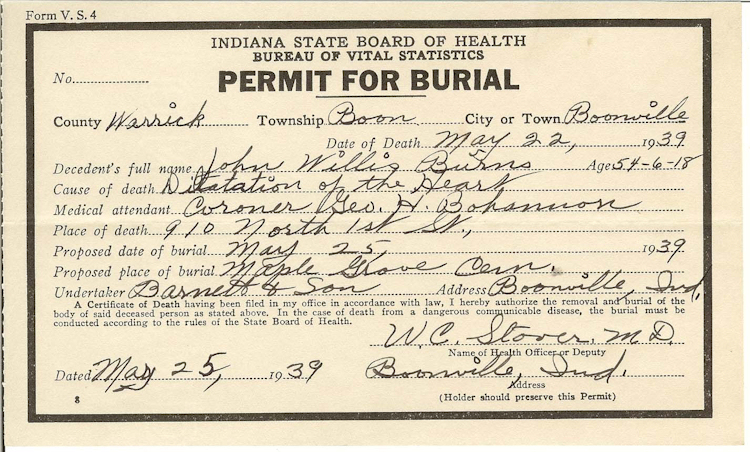 Form V. S. 4
INDIANA STATE BOARD OF HEALTH
BUREAU OF VITAL STATISTICS
No.
PERMIT FOR BURIAL
County Warrick Township Boon City or Town Boonville
Date of Death May 22, 1939
Decedent's full name John Willis Burns Age 54-6-18
Cause of death Dilatation of the Heart
Medical attendant Coroner Geo. H. Bohannon
Place of death 910 North 1st St.,
Proposed date of burial May 25, 1939
Proposed place of burial Maple Grove Cem.
Undertaker Barnett & Son Address Boonville, Ind.
A Certificate of Death having been filed in my office in accordance with law, I hereby authorize the removal and burial of the
body of said deceased person as stated above. In the case of death from a dangerous communicable disease, the burial must be
conducted according to the rules of the State Board of Health.
W. C. Stover. M.D.
Name of Health Officer or Deputy
Dated May 25, 1939 Boonville, Ind.
Address
8 (Holder should preserve this Permit)